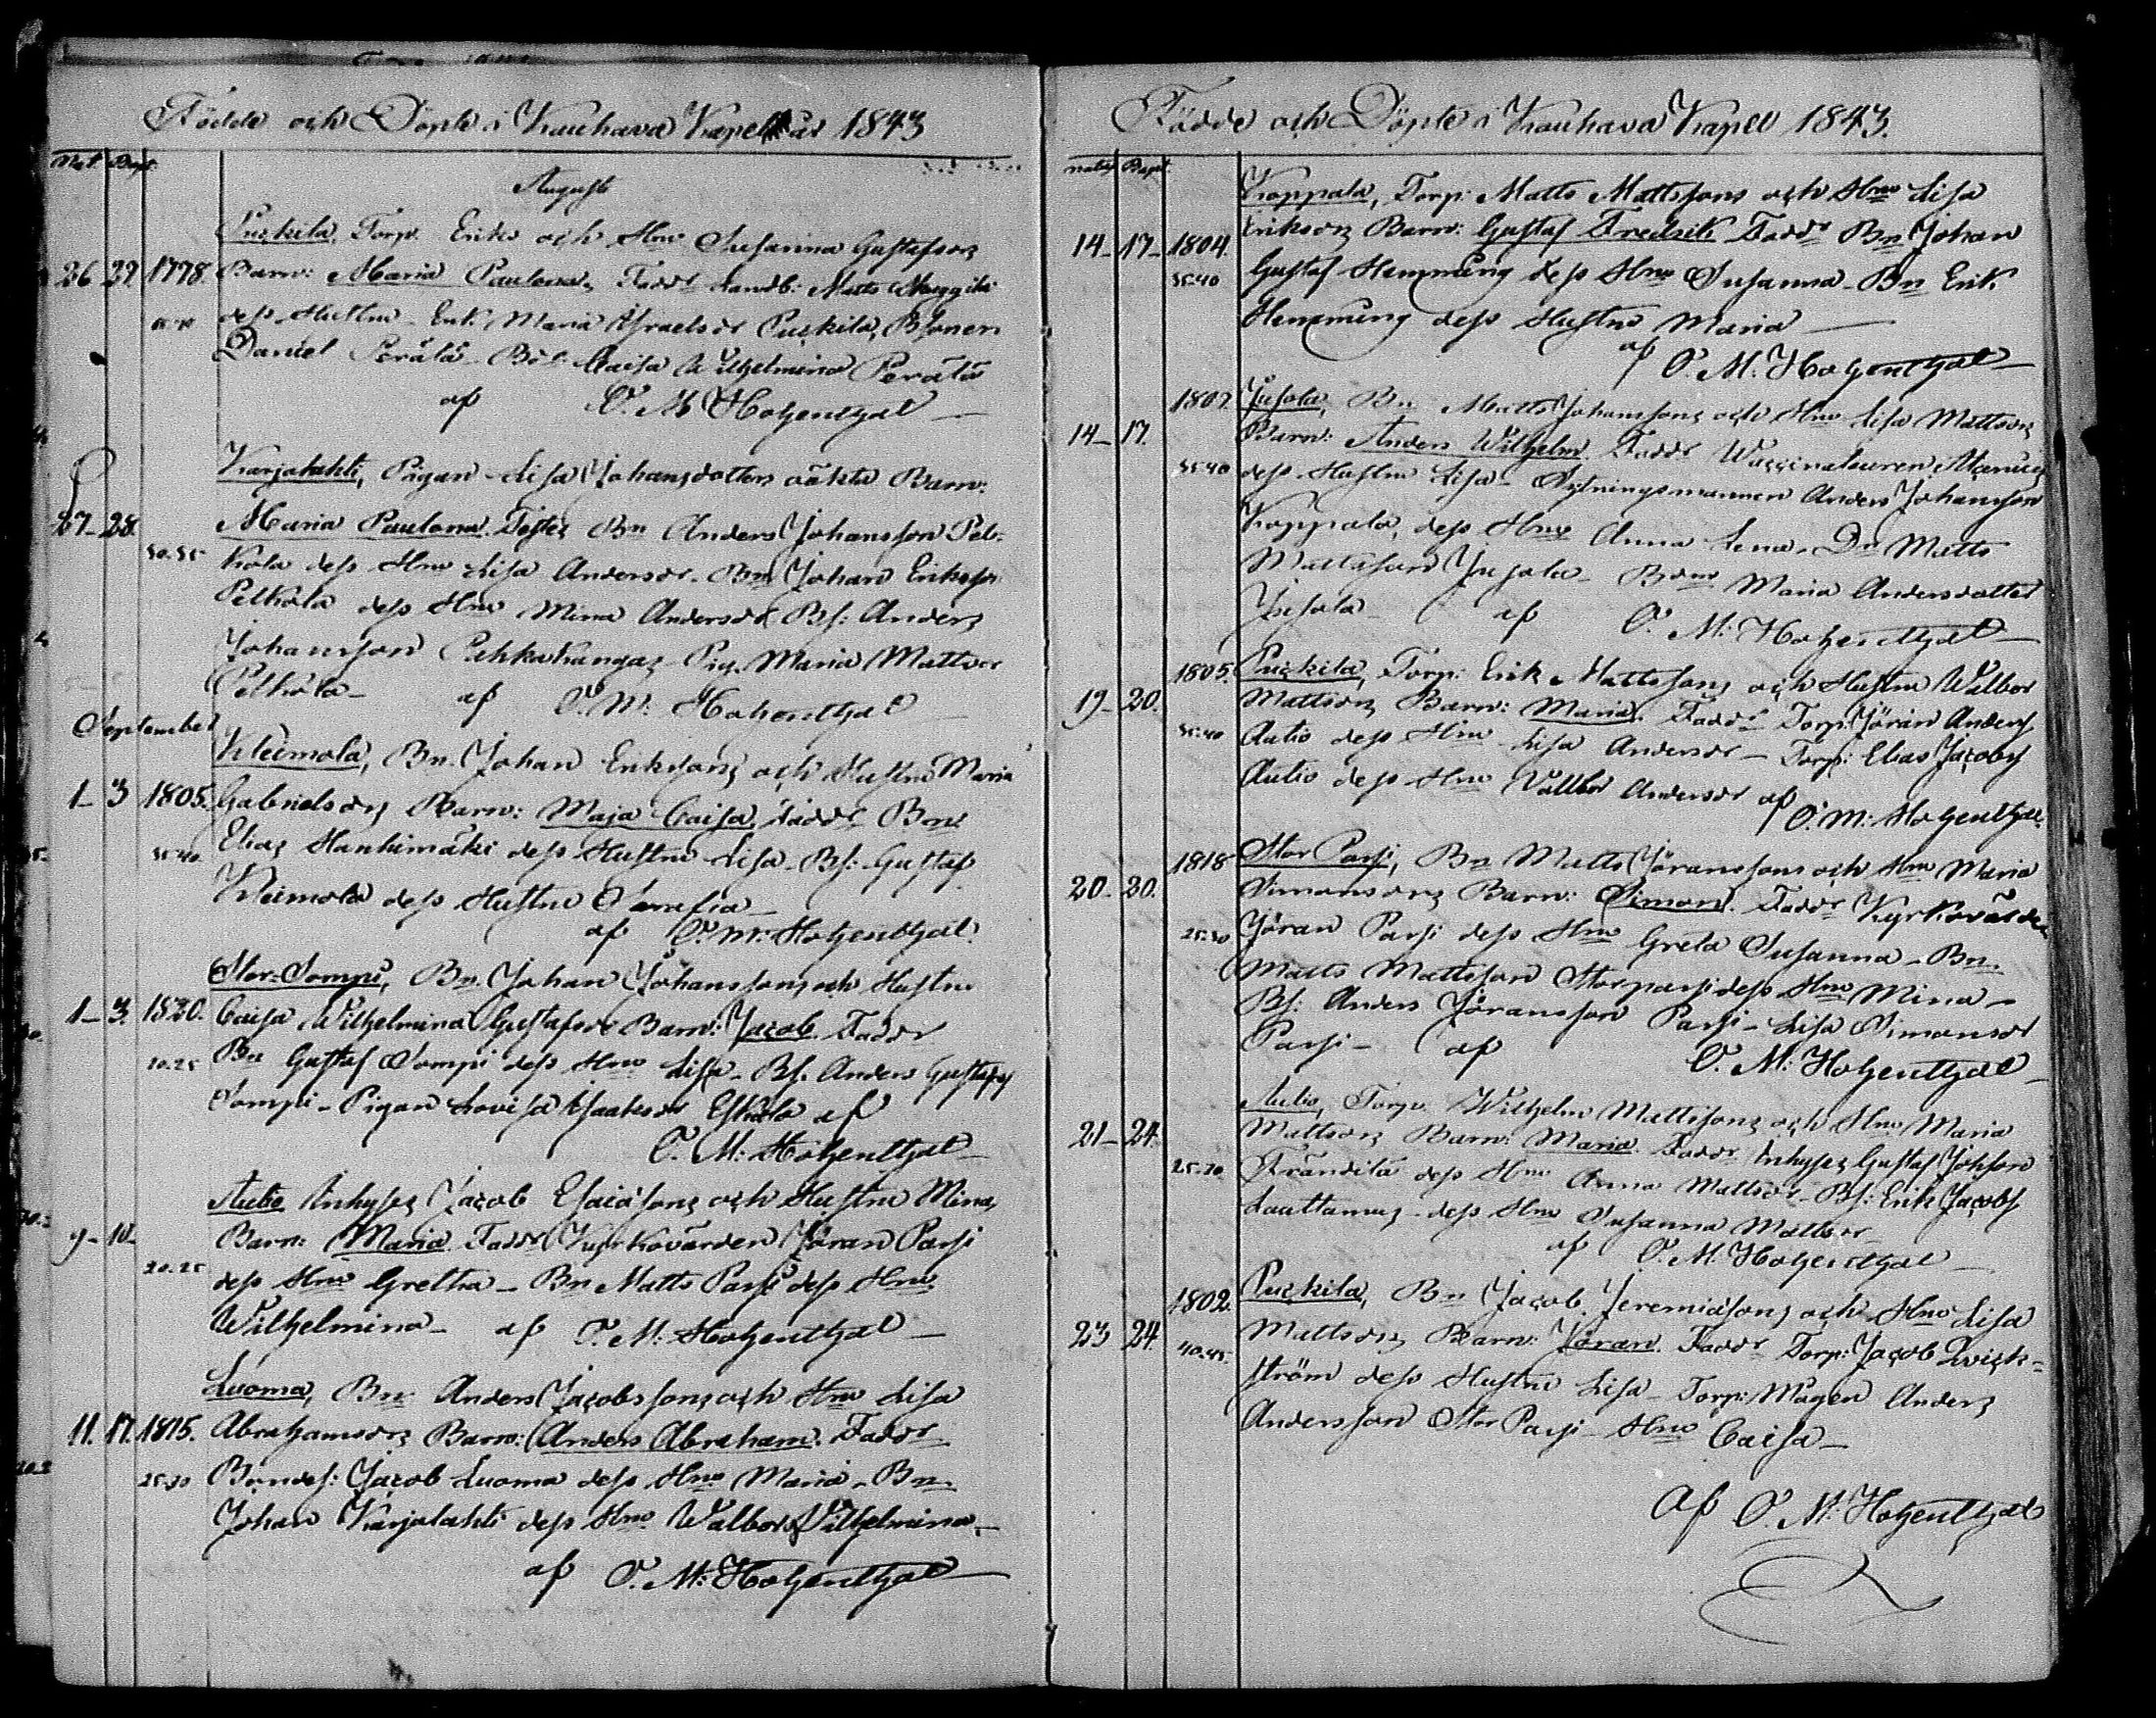 Födde och Döpte i Kauhava Kapell år 1843
Nat. Bapt.
Augusti
Puckila, Torp. Eriks och Hru Susanna Gustafsdrs
26 27. 1778. Barn: Maria Paulona, Faddr Landb: Matts
dess Hustru Enk. Maria Israelsdr Puckila, Bsonen
Daniel Perälä Bdr Caisa Wilhelmina Perälä
af O. M. Hohenthal
Karjalahti, Pigan Lisa Johansdotters oäkta Barn:
27 - 28. Maria Paulona. Bn Anders Johansson Pel-
30.35 kola dess Hru Lisa Andersdr. Bn Johan Eriksson
Pelkola dess Hru Mina Andersdr Bs: Anders
Johansson Pahkakangas Pig. Maria Mattsdr
Pelkola af O. M. Hohenthal
September
Kleimola, Bn. Johan Erikssons och Hustru Maria
1 - 3 1805. Gabrielsdrs Barn: Maja Caisa, Faddr Bn.
35.40 Elias Hanhimäki dess Hustru Lisa. Bs: Gustaf
Kleimola dess Hustru Serafia
af O. M. Hohenthal.
Stor-Sompi, Bn. Johan Johanssons och Hustru
1 - 3. 1820. Caisa Wilhelmina Gustafsdrs Barn: Jacob Faddr
20.25 Bn Gustaf Sompi dess Hru Lisa. Bs. Anders Gustafss
Sompi - Pigan Lovisa Isaksdr Eskola af
O. M: Hohenthal
Autio Inhyses Jacob Esaiasons och Hustru Minas
9 - 10 - Barn: Maria Faddr Kyrkovärden Jöran Passi
20.25 dess Hru Gretha - Bn Matts Passi dess Hru
Wilhelmina - af O. M: Hohenthal
Luoma, Bn Anders Jacobssons och Hru Lisa
11. 17. 1815. Abrahamsdrs Barn: Anders Abraham. Faddr
25.30 Bondes: Jacob Luoma dess Hru Maria - Bn
Johan Karjalahti dess Hru Walborg Wilhelmina -
af O. M: Hohenthal
Födde och Döpte i Kauhava Kapell 1843.
natus Bapt.
Koppala, Torp. Matts Mattssons och Hru Lisa
14 - 17 - 1804. Eriksdrs Barn: Gustaf Fredrik Faddr Bn Johan
35-40 Gustaf Hemming dess Hru Susanna - Bn Erik
Hemming dess Hustru Maria
af O. M. Hohenthal
1802. Jusola, Bn Matts Johanssons och Hru Lisa Mattsdrs
14 - 17. Barn: Anders Wilhelm Faddr Waccinateuren
35.40 dess Hustru Lisa - Rytningsmannen Anders Johansson
Koppala, dess Hru Anna Lena. Dr Matts
Mattsson Jusola - Maria Andersdotter
Jusola - af O. M: Hohenthal
1805. Puckila, Torp: Erik Mattssons och Hustru Walbor
19 - 20. Mattsdrs Barn: Maria. Faddr Torp: Jöran Anderss
35.40 Autio dess Hru Lisa Andersdr - Torp: Elias Jacobss
Autio dess Hru Valbor Andersdr af
O. M: Hohenthal.
1818 Stor Passi, Bn Matts Jöranssons och Hru Maria
20 - 20. Simonsdrs Barn: Simon. Faddr Kyrkovärden
25.30 Jöran Passi dess Hru Greta Susanna - Bn.
Matts Mattsson Storpassi dess Hru Mina -
Bs: Anders Jöransson Passi - Lisa Simonsdr
Passi - af O. M: Hohenthal
Autio, Torp. Wilhelm Mattssons och Hru Maria
21 - 24. Mattsdrs Barn: Maria Faddr Inhyses Gustaf Johsson
25.30 Frändilä dess Hru Anna Mattsdr - Bs: Erik Jacobs
Lauttamus - dess Hru Susanna Mattsdr
af O. M. Hohenthal
1802. Puckila, Bn Jacob Jeremiasons och Hru Lisa
23 24. Mattsdrs Barn: Jöran. Faddr Torp: Jacob Qvick-
40.45. ström dess Hustru Lisa - Torp: Mågen Anders
Andersson Stor Passi - Hru Caisa -
af O. M: Hohenthal